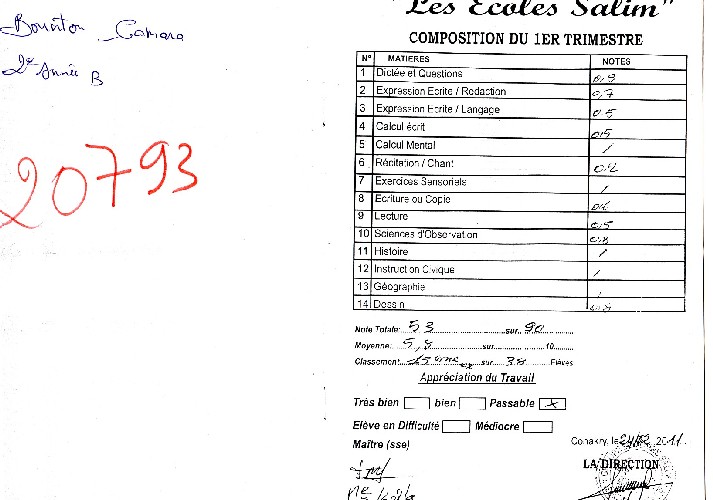 Camara
2e Année B
20793
"Les Ecoles Salim"
COMPOSITION DU 1ER TRIMESTRE
N° MATIERES NOTES
1 Dictée et Questions 0,9
2 Expression Ecrite / Redaction 0,7
3 Expression Ecrite / Langage 0 5
4 Calcul écrit 0,5
5 Calcul Mental /
6 Récitation / Chant
7 Exercices Sensoriels /
8 Ecriture ou Copie
9 Lecture 0,5
10 Sciences d'Observation 0,8
11 Histoire /
12 Instruction Civique /
13 Géographie /
14 Dessin
Note Totale: 53 sur 90
Moyenne: 5,8 sur 10
Classement 15eme ex sur 38 Elèves
Appréciation du Travail
Très bien bien Passable x
Elève en Difficulté Médiocre
Maître (sse)
Conakry, le 2011
LA DIRECTION